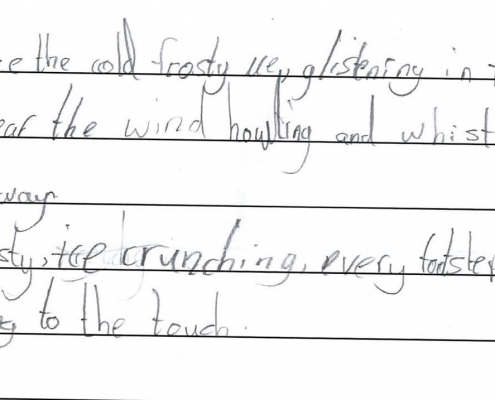 e the cold frosty glistening in
ear the wind howling and whist
way
sty, ice crunching, every footste
to the touch.